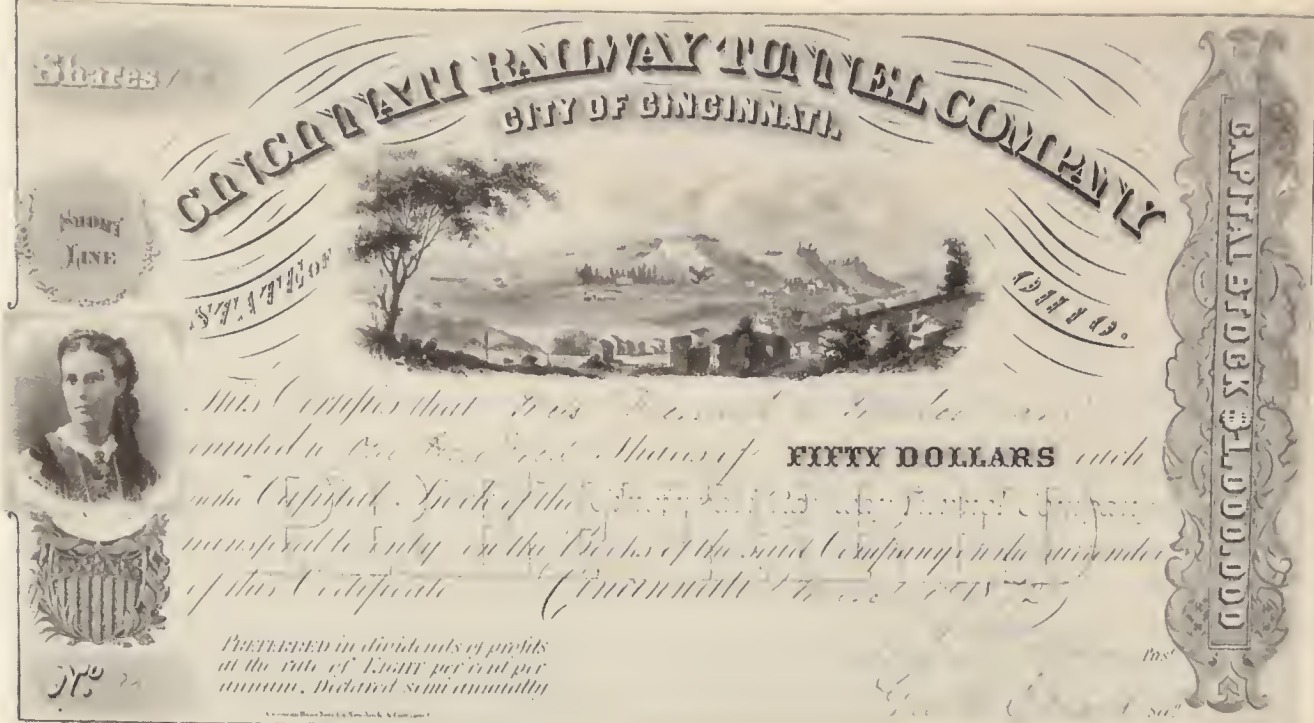 Shares
CINCINNATI RAILWAY TUNNEL COMPANY
CITY OF CINCINNATI.
STATE OF OHIO.
SHORT LINE
This Certifies that
entitled to One Hundred Shares of FIFTY DOLLARS each
in the Capital Stock of the Cincinnati Railway Tunnel Company
transferable only on the Books of the said Company on the surrender
of this Certificate Cincinnati
PREFERRED in dividends of profits
at the rate of EIGHT per cent per
annum. Declared semi annually
No.
Pres't
Sec'y
CAPITAL STOCK $1,000,000